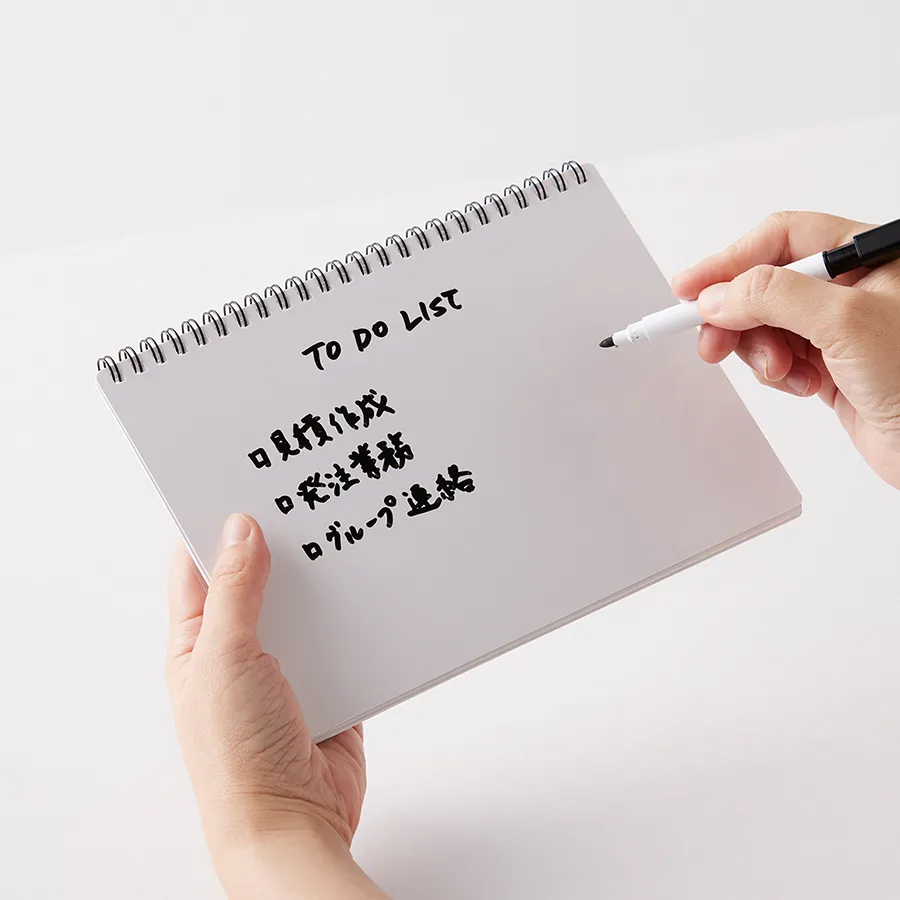 TO DO LIST
□見積作成
□発注業務
□グループ連絡